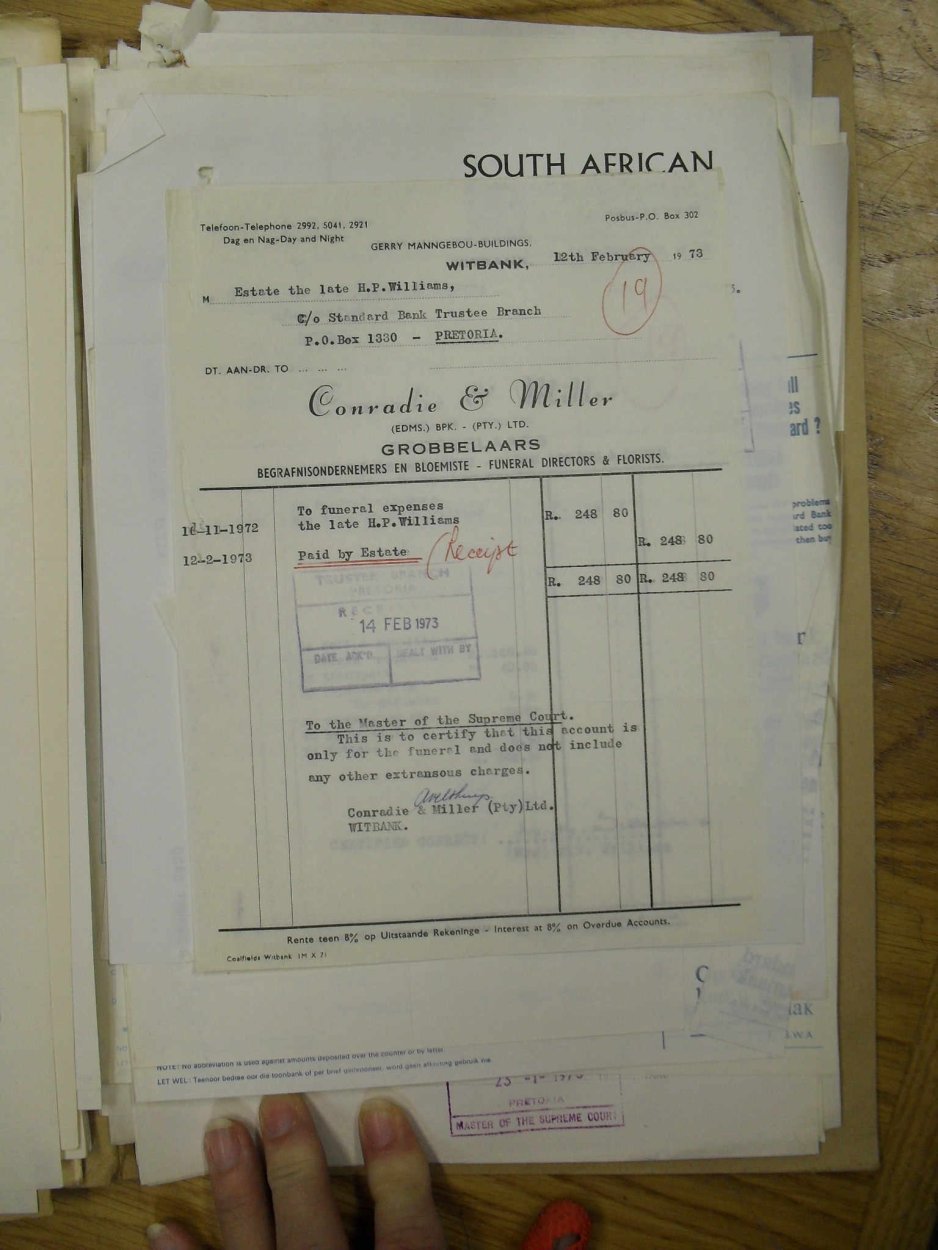 SOUTH AFRICAN
Telefoon-Telephone 2992, 5041, 2921
Dag en Nag-Day and Night
Posbus-P.O. Box 302
GERRY MANNGEBOU-BUILDINGS,
WITBANK, 12th February 19 73
M Estate the late H.P.Williams,
19
C/o Standard Bank Trustee Branch
P.O.Box 1330 - PRETORIA.
DT. AAN-DR. TO
Conradie & Miller
(EDMS.) BPK. - (PTY.) LTD.
GROBBELAARS
BEGRAFNISONDERNEMERS EN BLOEMISTE - FUNERAL DIRECTORS & FLORISTS.
To funeral expenses
-11-1972 the late H.P.Williams R. 248 80
12-2-1973 Paid by Estate (Receipt R. 248 80
R. 248 80 R. 248 80
TRUSTEE BRANCH
PRETORIA
14 FEB 1973
DATE ACK'D. DEALT WITH BY
To the Master of the Supreme Court.
This is to certify that this account is
only for the funeral and does not include
any other extransous charges.
Conradie & Miller (Pty)Ltd.
WITBANK.
Rente teen 8% op Uitstaande Rekeninge - Interest at 8% on Overdue Accounts.
Coalfields Witbank 1M X 71
ard ?
problems
rd Bank
then buy
NOTE: No abbreviation is used against amounts deposited over the counter or by letter.
LET WEL: Teenoor bedrae oor die toonbank of per brief gedeponeer, word geen afkorting gebruik nie.
PRETORIA
MASTER OF THE SUPREME COURT